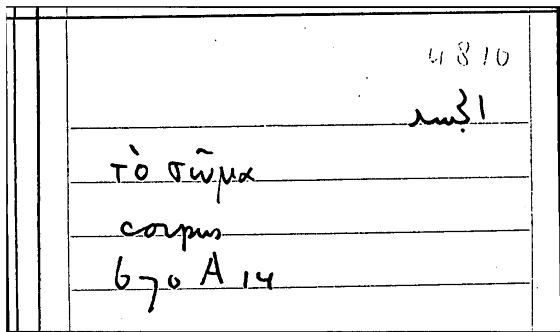 4810
τὸ σῶμα
corpus
670 A 14